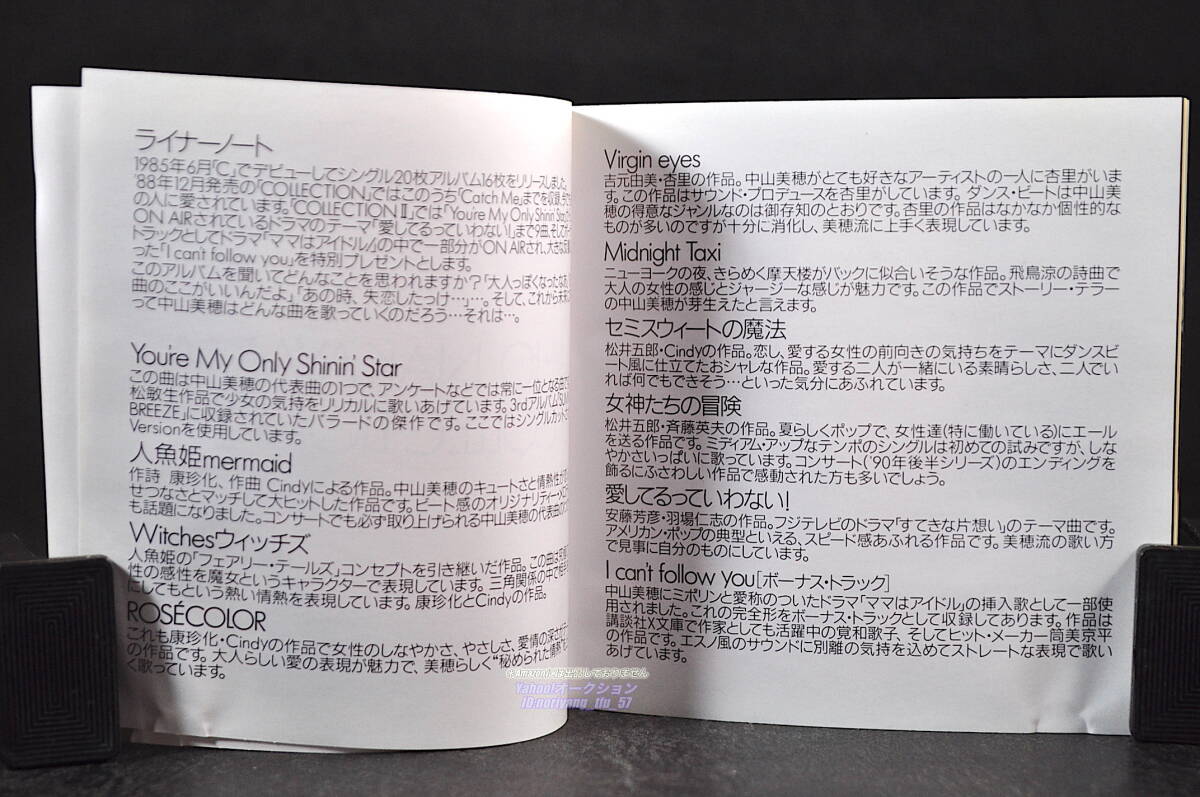 ライナーノート
1985年6月「C」でデビューしてシングル20枚アルバム16枚をリリースしました。
'88年12月発売の「COLLECTION」ではこのうち「Catch Me」までを収録、
の人に愛されています。「COLLECTION II」では「You're My Only Shinin' Star」
ON AIRされているドラマのテーマ「愛してるっていわない!」まで9曲、そして
トラックとしてドラマ「ママはアイドル」の中で一部分がON AIRされ、大きな
った「I can't follow you」を特別プレゼントとします。
このアルバムを聞いてどんなことを思われますか?「大人っぽくなったなあ」
曲のここがいいんだよ」「あの時、失恋したっけ…」…。そして、これから
って中山美穂はどんな曲を歌っていくのだろう…それは…。
You're My Only Shinin' Star
この曲は中山美穂の代表曲の1つで、アンケートなどでは常に一位となる
松敏生作品で少女の気持をリリカルに歌いあげています。3rdアルバム「SU
BREEZE」に収録されていたバラードの傑作です。ここではシングルカット
Versionを使用しています。
人魚姫mermaid
作詩 康珍化、作曲 Cindyによる作品。中山美穂のキュートさと情熱性が
せつなさとマッチして大ヒットした作品です。ビート感のオリジナリティー
も話題になりました。コンサートでも必ず取り上げられる中山美穂の代表曲の
Witchesウィッチズ
人魚姫の「フェアリー・テールズ」コンセプトを引き継いだ作品。この曲は
性の感性を魔女というキャラクターで表現しています。三角関係の中で
にしてもという熱い情熱を表現しています。康珍化とCindyの作品。
ROSÉCOLOR
これも康珍化・Cindyの作品で女性のしなやかさ、やさしさ、愛情の深さ
の作品です。大人らしい愛の表現が魅力で、美穂らしく“秘められた情熱
く歌っています。
Virgin eyes
吉元由美・杏里の作品。中山美穂がとても好きなアーティストの一人に杏里がいま
す。この作品はサウンド・プロデュースを杏里がしています。ダンス・ビートは中山美
穂の得意なジャンルなのは御存知のとおりです。杏里の作品はなかなか個性的な
ものが多いのですが十分に消化し、美穂流に上手く表現しています。
Midnight Taxi
ニューヨークの夜、きらめく摩天楼がバックに似合いそうな作品。飛鳥涼の詩曲で
大人の女性の感じとジャージーな感じが魅力です。この作品でストーリー・テラー
の中山美穂が芽生えたと言えます。
セミスウィートの魔法
松井五郎・Cindyの作品。恋し、愛する女性の前向きの気持ちをテーマにダンスビ
ート風に仕立てたおシャレな作品。愛する二人が一緒にいる素晴らしさ、二人でい
れば何でもできそう…といった気分にあふれています。
女神たちの冒険
松井五郎・斉藤英夫の作品。夏らしくポップで、女性達(特に働いている)にエール
を送る作品です。ミディアム・アップなテンポのシングルは初めての試みですが、しな
やかさいっぱいに歌っています。コンサート('90年後半シリーズ)のエンディングを
飾るにふさわしい作品で感動された方も多いでしょう。
愛してるっていわない!
安藤芳彦・羽場仁志の作品。フジテレビのドラマ「すてきな片想い」のテーマ曲です。
アメリカン・ポップの典型といえる、スピード感あふれる作品です。美穂流の歌い方
で見事に自分のものにしています。
I can't follow you[ボーナス・トラック]
中山美穂にミポリンと愛称のついたドラマ「ママはアイドル」の挿入歌として一部使
用されました。これの完全形をボーナス・トラックとして収録してあります。作品は
講談社X文庫で作家としても活躍中の覚和歌子、そしてヒット・メーカー筒美京平
の作品です。エスノ風のサウンドに別離の気持を込めてストレートな表現で歌い
あげています。
※Amazonには出品しておりません
Yahoo!オークション
ID:noriyang_tfu_57